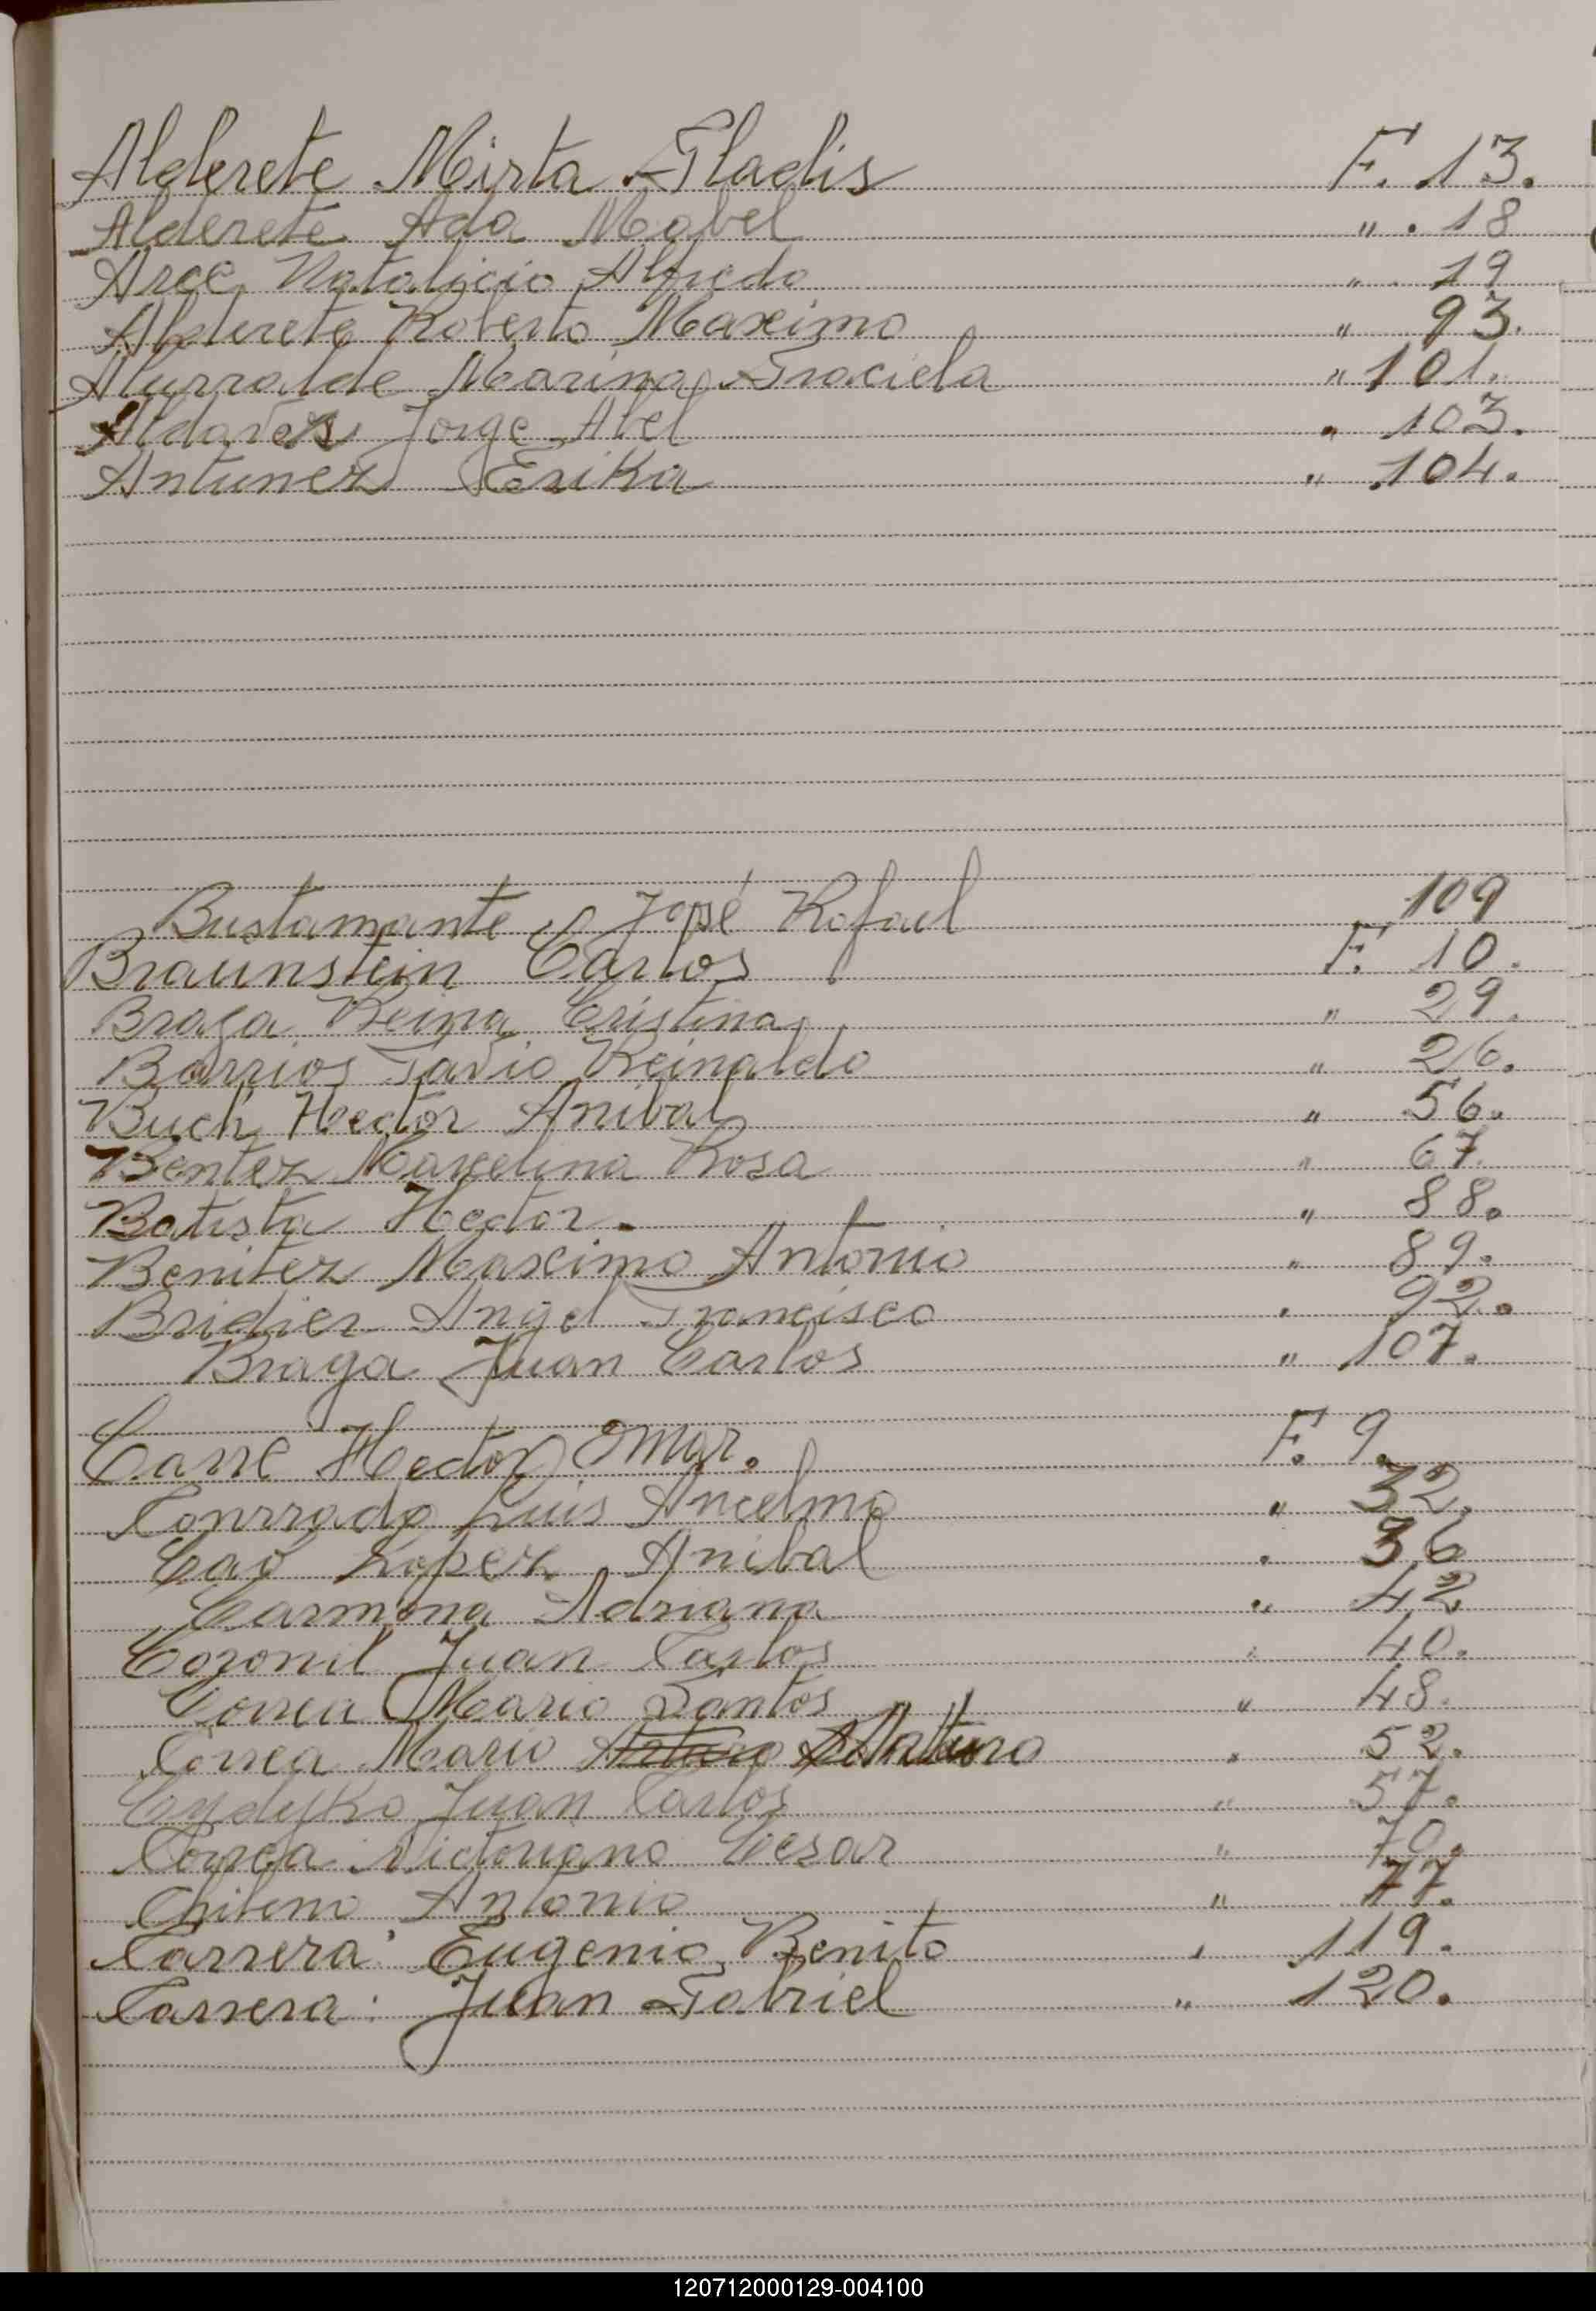 Alderete Mirta Gladis F. 13.
Alderete Ada Mabel " . 18
Arce Natalicio Alfredo " . 19
Alderete Roberto Maximo " 93.
Iturralde Marina Graciela " 101.
Aldares Jorge Abel " 103.
Antunez Erika " 104.
Bustamante José Rafael 109
Braunstein Carlos F. 10.
Braga Reina Cristina " 29.
Barrios Favio Reinaldo " 26.
Buch Hector Anibal " 56.
Bentez Marcelina Rosa " 67.
Batista Hector. " 88.
Benitez Maximo Antonio " 89.
Bridier Angel Francisco " 92.
Braga Juan Carlos " 107.
Carre Hector Omar. F. 9.
Conrrado Luis Ancelmo " 32.
Cao Lopez Anibal " 36
Carmona Adriana " 42
Coronil Juan Carlos " 40.
Correa Mario Santos " 48.
Correa Mario Arturo " 52.
Cydyko Juan Carlos " 57.
Correa Victoriano Cesar " 70.
Chileno Antonio " 77.
Carrera: Eugenio Benito " 119.
Carrera: Juan Gabriel " 120.
120712000129-004100